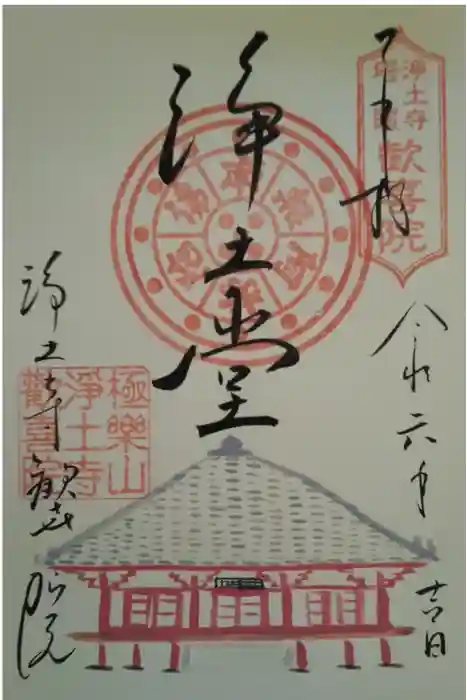 奉拝
浄土寺
塔頭
歓喜院
令和六年
吉日
浄土堂
浄土寺歓喜院
極樂山
淨土寺
歡喜院